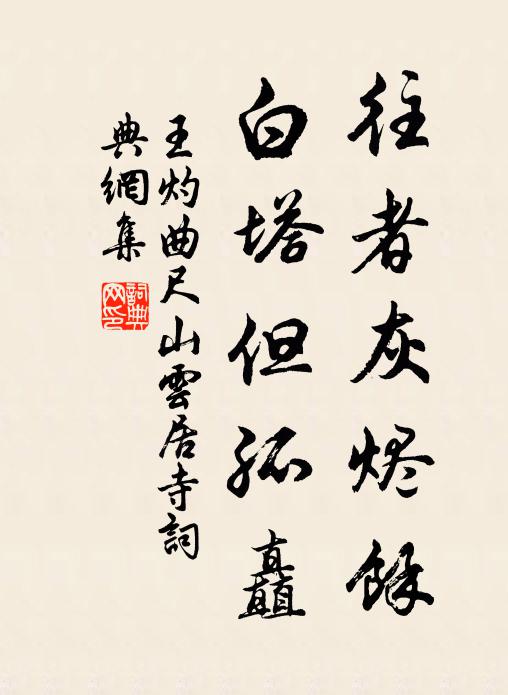 往者灰烬餘
白塔但孤矗
王灼曲尺山雲居寺詞
典網集
詞典网印